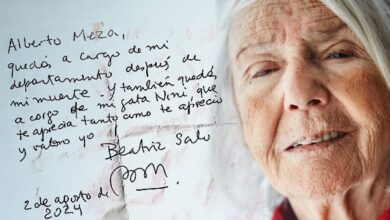 Alberto Meza,
quedás a cargo de mi
departamento después de
mi muerte. Y también quedás
a cargo de mi gata Nini, que
te aprecia tanto como te aprecio
y valoro yo
Beatriz Sarlo
2 de agosto de
2024